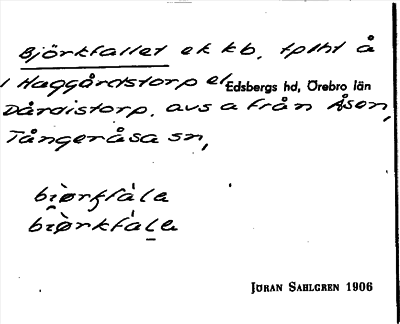 Björkfallet ek kb, tplht å
Haggårdstorp el Edsbergs hd, Örebro län
Dårdistorp, avs a från Åsen,
Tångeråsa sn,
bìørkfàla
bìørkfàla
JÖRAN SAHLGREN 1906